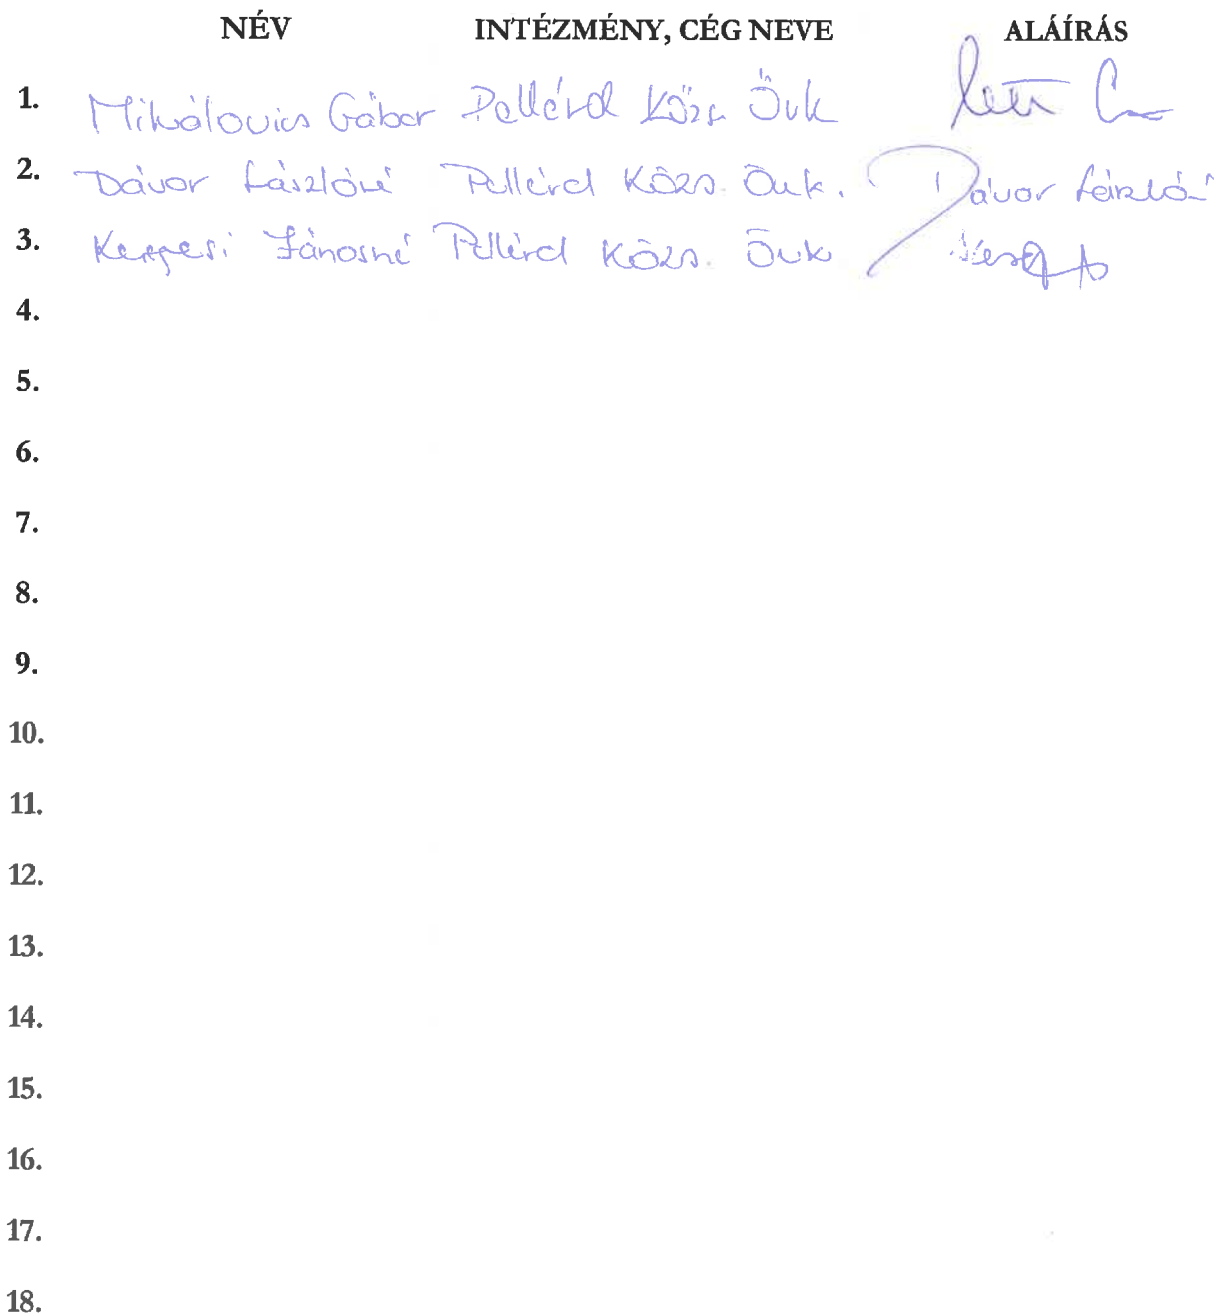 NÉV INTÉZMÉNY, CÉG NEVE ALÁÍRÁS
1. Mihálovics Gábor Pellérd Közs. Övk
2. Dávor Lászlóné Pellérd Közs. Önk. Dávor Lászlóné
3. János­né Pellérd Közs. Önk
4.
5.
6.
7.
8.
9.
10.
11.
12.
13.
14.
15.
16.
17.
18.